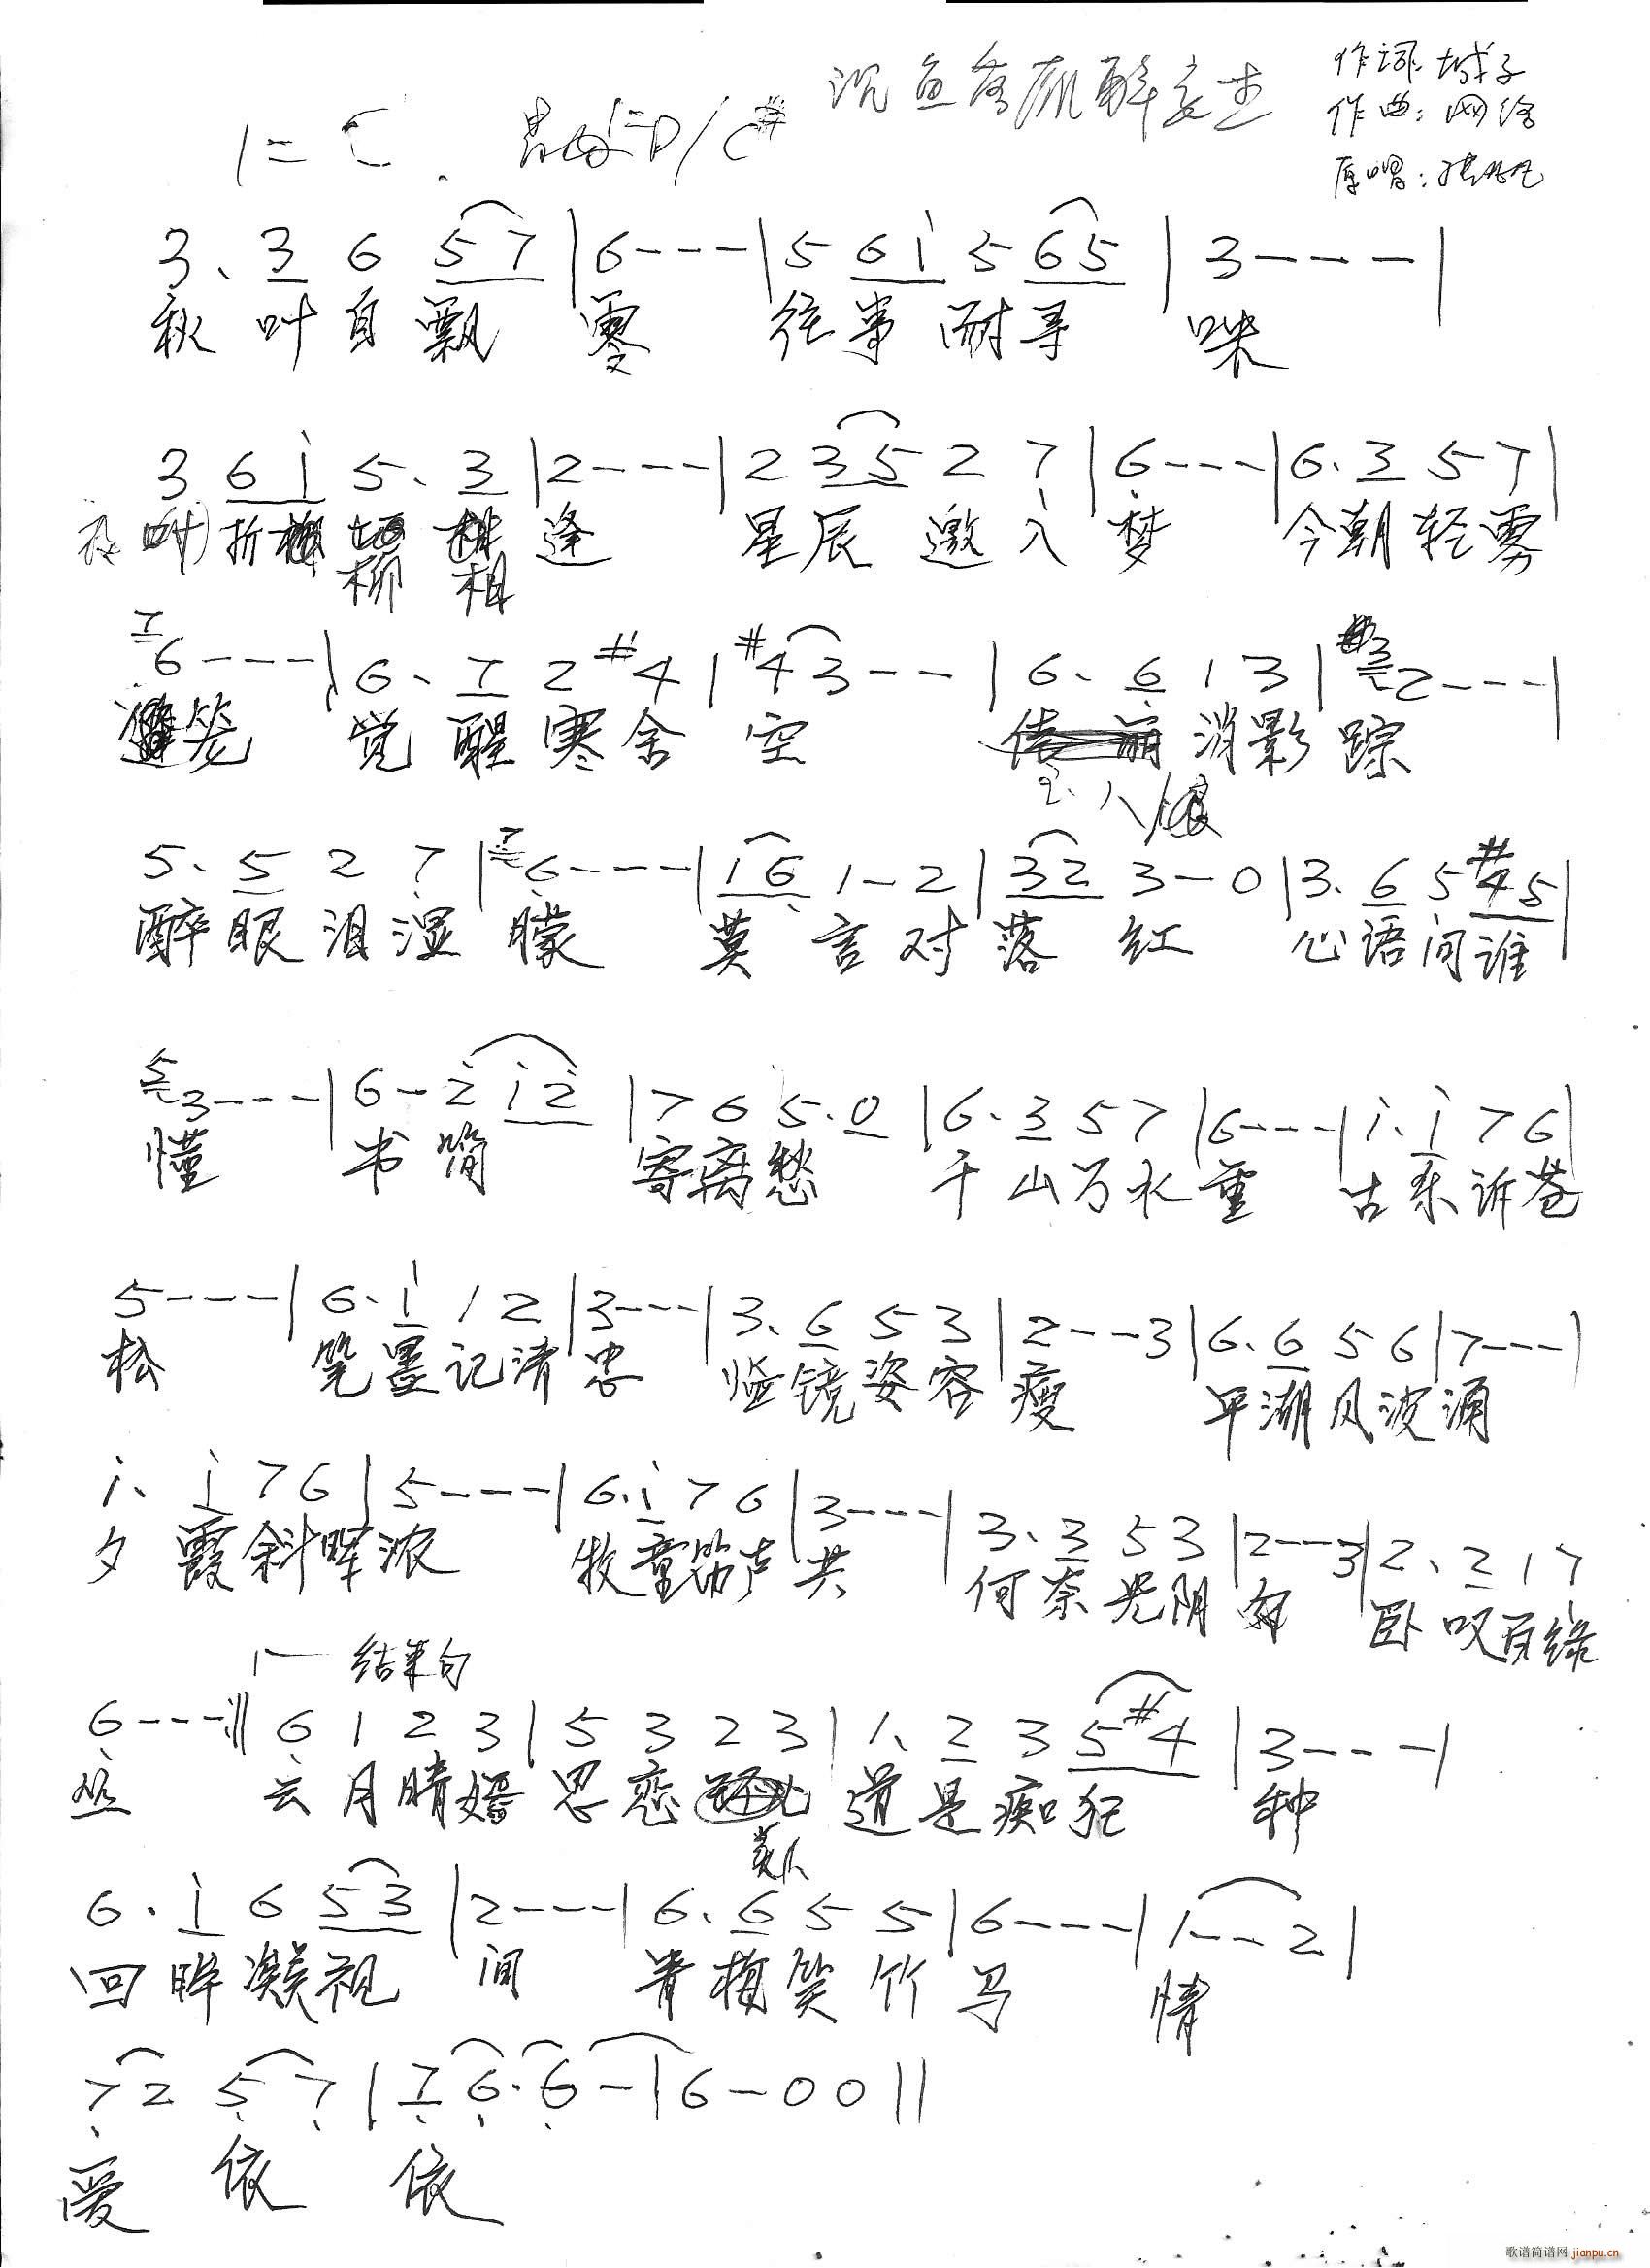 沉鱼落雁醉
作词:城子
作曲:网络
原唱:
1=C D/C#
3. 3 6 5 7 | 6 - - - | 5 6 i 5 6 5 | 3 - - - |
秋叶自飘零 往事耐寻味
3 6 i 5. 3 | 2 - - - | 2 3 5 2 7 | 6 - - - | 6. 3 5 7 |
折柳相逢 星辰邀入梦 今朝轻雾
7 6 - - - | 6. 7 2 #4 | #4 3 - - | 6. 6 1 3 | 3 2 - - - |
笼 觉醒寒舍空 消影踪
5. 5 2 7 | 7 6 - - - | 1 6 1 - 2 | 3 2 3 - 0 | 3. 6 5 #4 5 |
醉眼泪湿朦 莫言对落红 心语问谁
5 3 - - - | 6 - 2 i 2 | 7 6 5. 0 | 6. 3 5 7 | 6 - - - | i. i 7 6 |
懂 书简寄离愁 千山万水重 古乐诉苍
5 - - - | 6. i 1 2 | 3 - - - | 3. 6 5 3 | 2 - - 3 | 6. 6 5 6 | 7 - - - |
松 笔墨记清忠 临镜姿容瘦 平湖风波涌
i. i 7 6 | 5 - - - | 6. i 7 6 | 3 - - - | 3. 3 5 3 | 2 - - 3 | 2. 2 1 7
夕霞斜晖浓 牧童笛声共 何奈光阴匆 卧叹百缘
结束句
6 - - - :|| 6 1 2 3 | 5 3 2 3 | 1. 2 3 5 #4 | 3 - - - |
丝 云月晴嫣 思恋美人 道是痴狂种
6. i 6 5 3 | 2 - - - | 6. 6 5 5 | 6 - - - | 1 - - 2 |
回眸凝视间 青梅笑竹马情
7 2 5 7 | 7 6. 6 - | 6 - 0 0 ||
爱依依
歌谱简谱网 jianpu.cn